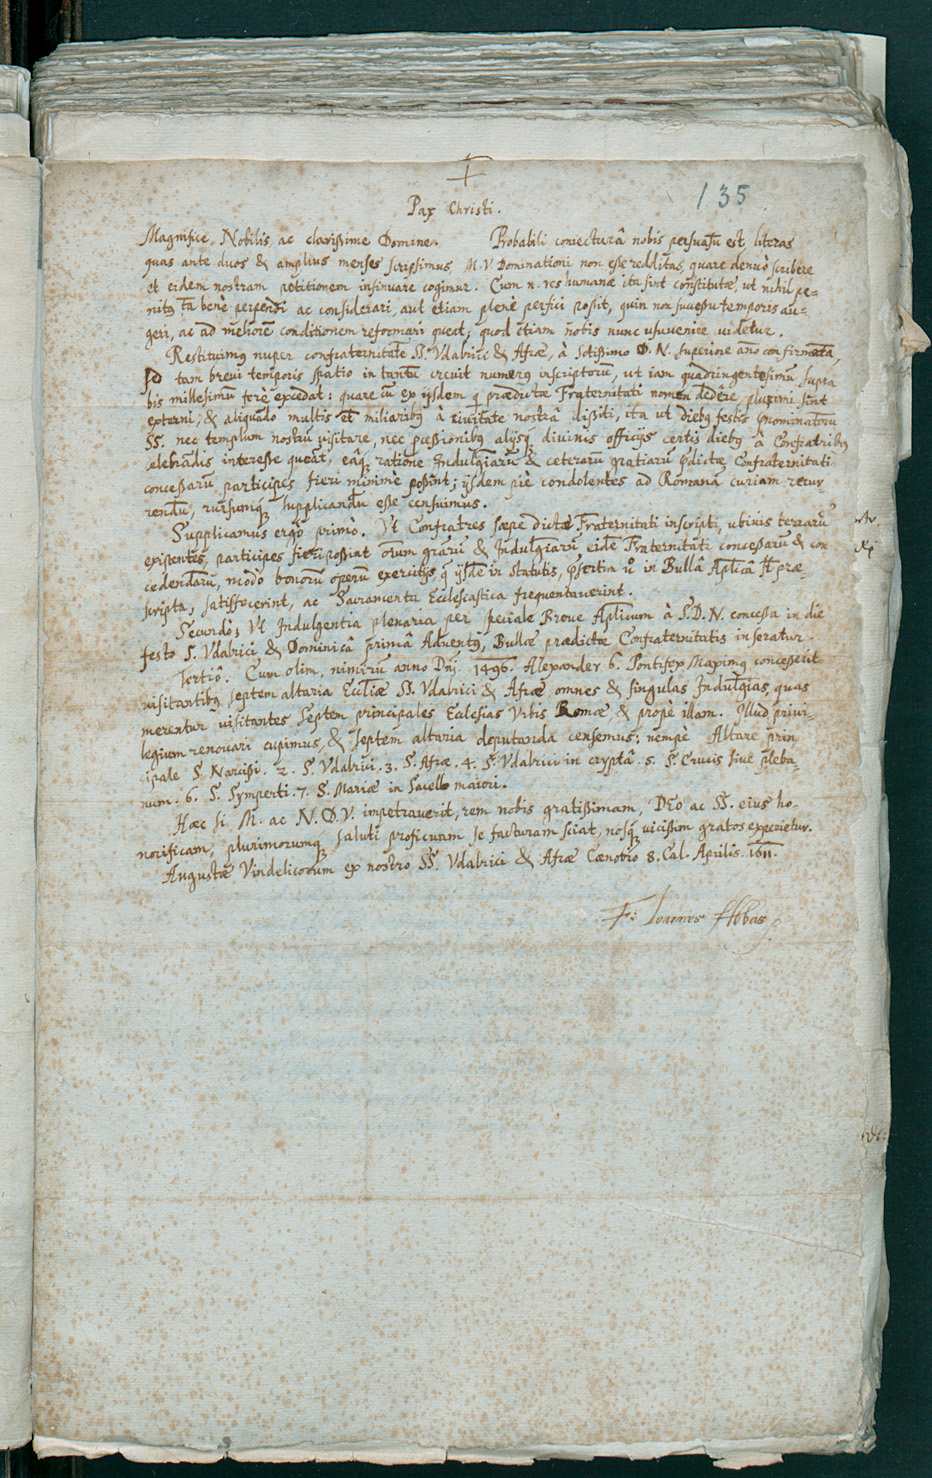 135
Pax Christi.
Magnifice, Nobilis, ac clarissime Domine. Probabili coniecturâ nobis persuasū est, literas
quas ante duos & amplius menses scripsimus, M. V. Dominationi non esse redditas, quare denuò scribere
et eidem nostram petitionem insinuare cogimur. Cum n. res humanæ ita sint constitutæ, ut nihil pe-
nitꝰ tā benè perpendi ac considerari, aut etiam plenè perfici possit, quin non successu temporis au-
geri, ac ad meliorē conditionem reformari queat, quod etiam nobis nunc usuvenire videtur.
Restituimꝰ nuper confraternitatē SS. Vdalrici & Afræ, à Sctissimo D. N. superiore año confirmatā,
tam brevi temporis spatio in tantū crevit numerꝰ inscriptorū, ut iam quadringentesimū supra
bis millesimum ferè excedat: quare cū ex ijsdem q prædictæ Fraternitati nomen dedêre, plurimi sint
externi, & aliquādo multis et miliaribꝰ à civitate nostrâ dissiti, ita ut diebꝰ festis nominatorū
SS. nec templum nostrū visitare, nec pcessionibꝰ alijsq; divinis officijs certis diebꝰ â Confratribꝰ
celebrādis interesse queāt, eâq; ratione Indulgiarū & ceterarū gratiarū pdictæ Confraternitati
concessarū participes fieri minimè possint; ijsdem piè condolentes ad Romanā curiam recur
rendū, rursumq; supplicandū esse censuimus.
Supplicamus ergò primò. Vt Confratres sæpe dictæ Fraternitati inscripti, ubivis terrarū
existentes, participes fieri possint oīum gratiarū & Indulgiarū eidē Fraternitati concessarū & con
cedendarū, modò bonorū operū exercitijs, q ijsdē in statutis, psertim u° in Bullâ Aplicâ st præ-
scripta, satisfecerint, ac Sacramenta Ecclesiastica frequentaverint.
Secundò; Vt Indulgentia plenaria per speciale Breve Aplicum à S. D. N. concessa in die
festo S. Vdalrici & Dominicâ primâ Adventꝰ, Bullæ prædictæ Confraternitatis inseratur.
Tertiô. Cum olim, nimirū anno Dnj. 1496. Alexander 6. Pontifex Maximꝰ concesserit
visitantibꝰ septem altaria Eccliæ SS. Vdalrici & Afræ omnes & singulas Indulgias, quas
merentur visitantes septem principales Ecclesias Vrbis Romæ, & propè illam. Illud privi-
legium renovari cupimus, & septem altaria deputanda censemus; nempè Altare prin
cipale S. Narcissi. 2. S. Vdalrici. 3. S. Afræ. 4. S. Vdalrici in cryptâ. 5. S. Crucis sive pleba-
num. 6. S. Symperti. 7. S. Mariæ in Sacello maiori.
Hæc si M. ac N. D. V. impetraverit, rem nobis gratissimam, DEo ac SS. eius ho-
norificam, plurimorumq; saluti proficuam se facturam sciat, nosq; vicissim gratos experietur.
Augustæ Vindelicorum ex nostro SS. Vdalrici & Afræ Cœnobio 8. Cal. Aprilis. 1611.
F: Joannes Abbas